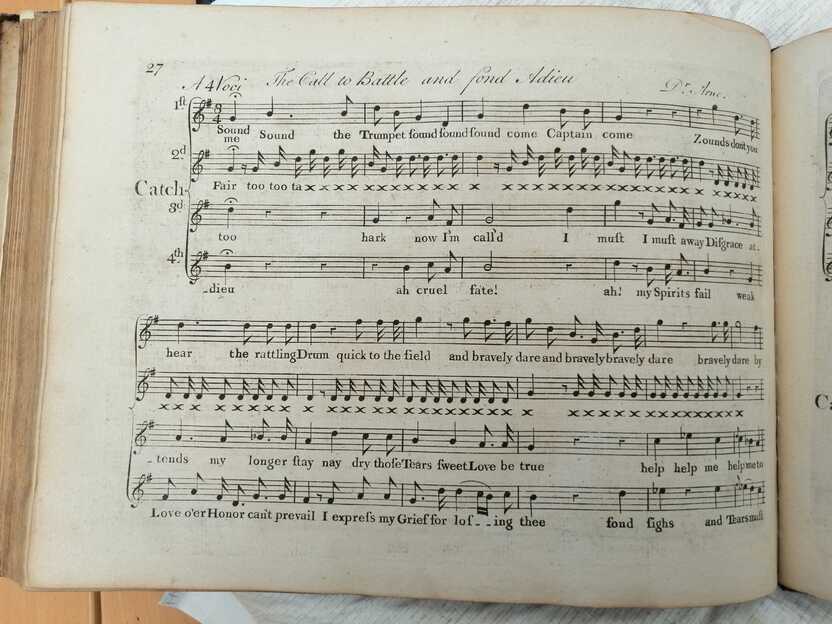 27
A 4 Voci The Call to Battle and fond Adieu Dr. Arne.
1st
Sound Sound the Trumpet ſound ſound ſound come Captain come Zounds dont you
me
2d
Catch
Fair too too ta x x x x x x x x x x x x x x x x x x x x x x x x x x x
3d
too hark now I'm call'd I muſt I muſt away Diſgrace at-
4th
-dieu ah cruel fate! ah! my Spirits fail weak
hear the rattling Drum quick to the field and bravely dare and bravely bravely dare bravely dare by
x x x x x x x x x x x x x x x x x x x x x x x x x x x x x x x
-tends my longer ſtay nay dry thoſe Tears ſweet Love be true help help me help me to
Love o'er Honor can't prevail I expreſs my Grief for loſ--ing thee fond ſighs and Tears muſt